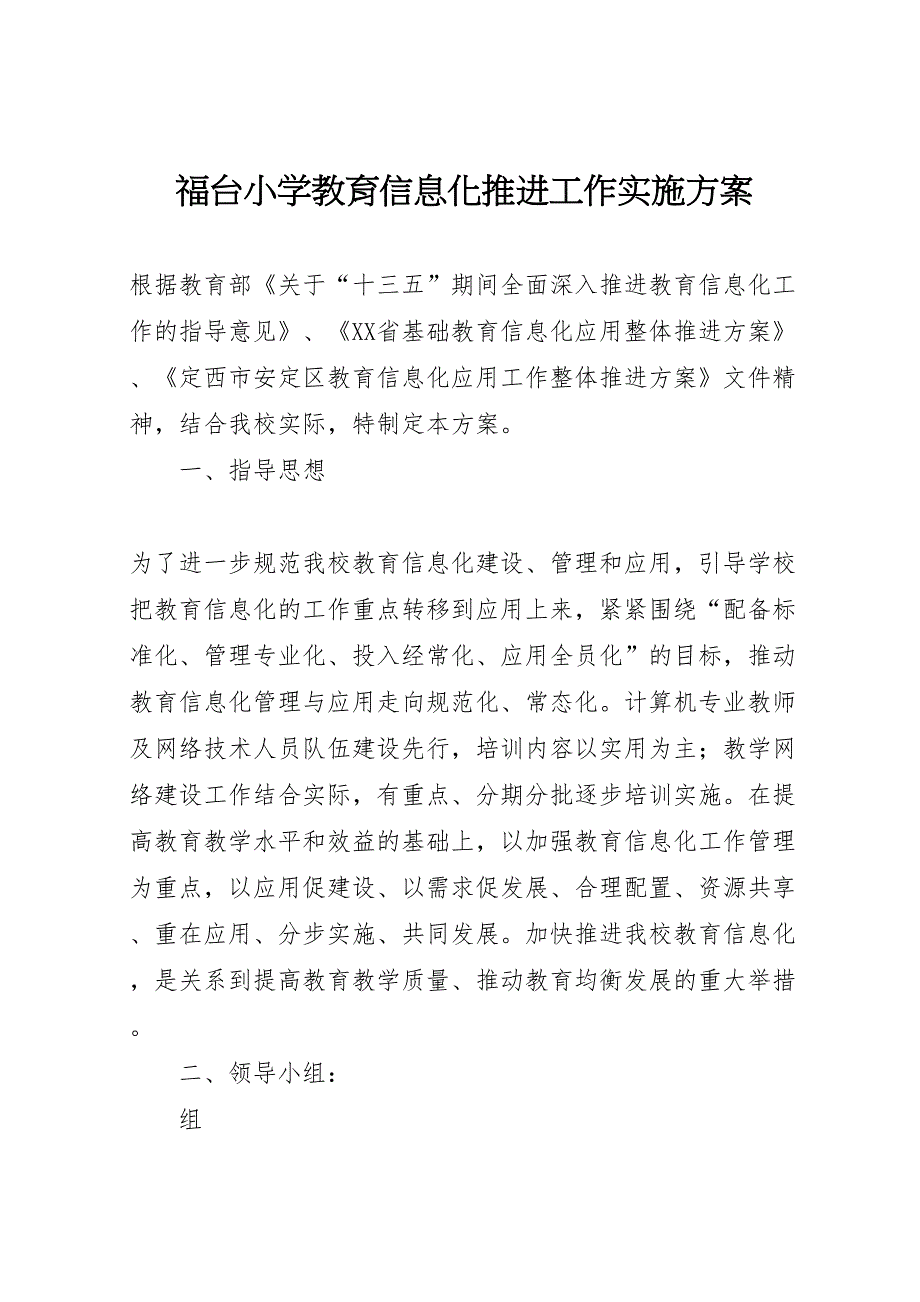 福台小学教育信息化推进工作实施方案
根据教育部《关于“十三五”期间全面深入推进教育信息化工
作的指导意见》、《XX省基础教育信息化应用整体推进方案》
、《定西市安定区教育信息化应用工作整体推进方案》文件精
神，结合我校实际，特制定本方案。
一、指导思想
为了进一步规范我校教育信息化建设、管理和应用，引导学校
把教育信息化的工作重点转移到应用上来，紧紧围绕“配备标
准化、管理专业化、投入经常化、应用全员化”的目标，推动
教育信息化管理与应用走向规范化、常态化。计算机专业教师
及网络技术人员队伍建设先行，培训内容以实用为主；教学网
络建设工作结合实际，有重点、分期分批逐步培训实施。在提
高教育教学水平和效益的基础上，以加强教育信息化工作管理
为重点，以应用促建设、以需求促发展、合理配置、资源共享
、重在应用、分步实施、共同发展。加快推进我校教育信息化
，是关系到提高教育教学质量、推动教育均衡发展的重大举措
。
二、领导小组：
组